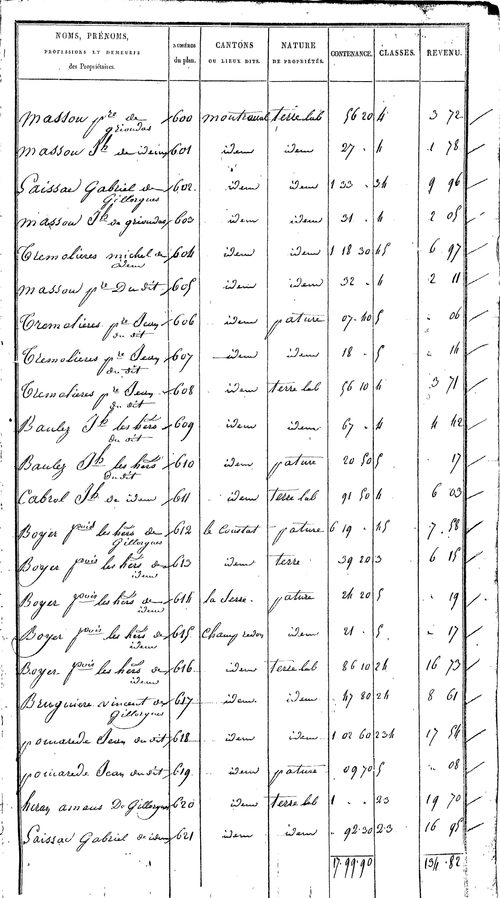 NOMS, PRÉNOMS, NUMÉROS CANTONS NATURE CONTENANCE. CLASSES. REVENU.
PROFESSIONS ET DEMEURES du plan. OU LIEUX DITS. DE PROPRIÉTÉS.
des Propriétaires.
Massou pre de 600 terre lab 56 20 4 3 72
grioudas
Massou Jh de idem 601 idem idem 27 . 4 1 78
Laissac Gabriel de 602 idem idem 1 33 . 34 9 96
Gillorgues
Massou Jh de grioudas 603 idem idem 31 . 4 2 05
Tremolieres michel de 604 idem idem 1 18 30 45 6 97
idem
Massou pre Du dit 605 idem idem 32 . 4 2 11
Tremolieres pre Jean 606 idem pature 07 40 5 . 06
du dit
Tremolieres pre Jean 607 idem idem 18 . 5 . 14
du dit
Tremolieres pre Jean 608 idem terre lab 56 10 4 3 71
du dit
Baulez Jh les hers 609 idem idem 67 . 4 4 42
du dit
Baulez Jh les hers 610 idem pature 20 50 5 . 17
du dit
Cabrol Jh de idem 611 idem terre lab 91 50 4 6 03
Boyer les hers de 612 le Coustat pature 6 19 . 45 7 58
Gillorgues
Boyer les hers de 613 idem terre 39 20 3 6 15
idem
Boyer les hers de 614 la Serre pature 24 20 5 . 19
idem
Boyer les hers de 615 Champ redon idem 21 . 5 . 17
idem
Boyer les hers de 616 idem terre lab 86 10 24 16 73
idem
Bruguiere vincent de 617 idem idem 47 80 24 8 61
Gillorgues
pomarede Jean du dit 618 idem idem 1 02 60 234 17 54
pomarede Jean du dit 619 idem pature 09 70 5 . 08
amans De Gillorgues 620 idem terre lab 1 . . 23 19 70
Laissac Gabriel de idem 621 idem idem . 92 30 23 16 95
17 99 90 134 82